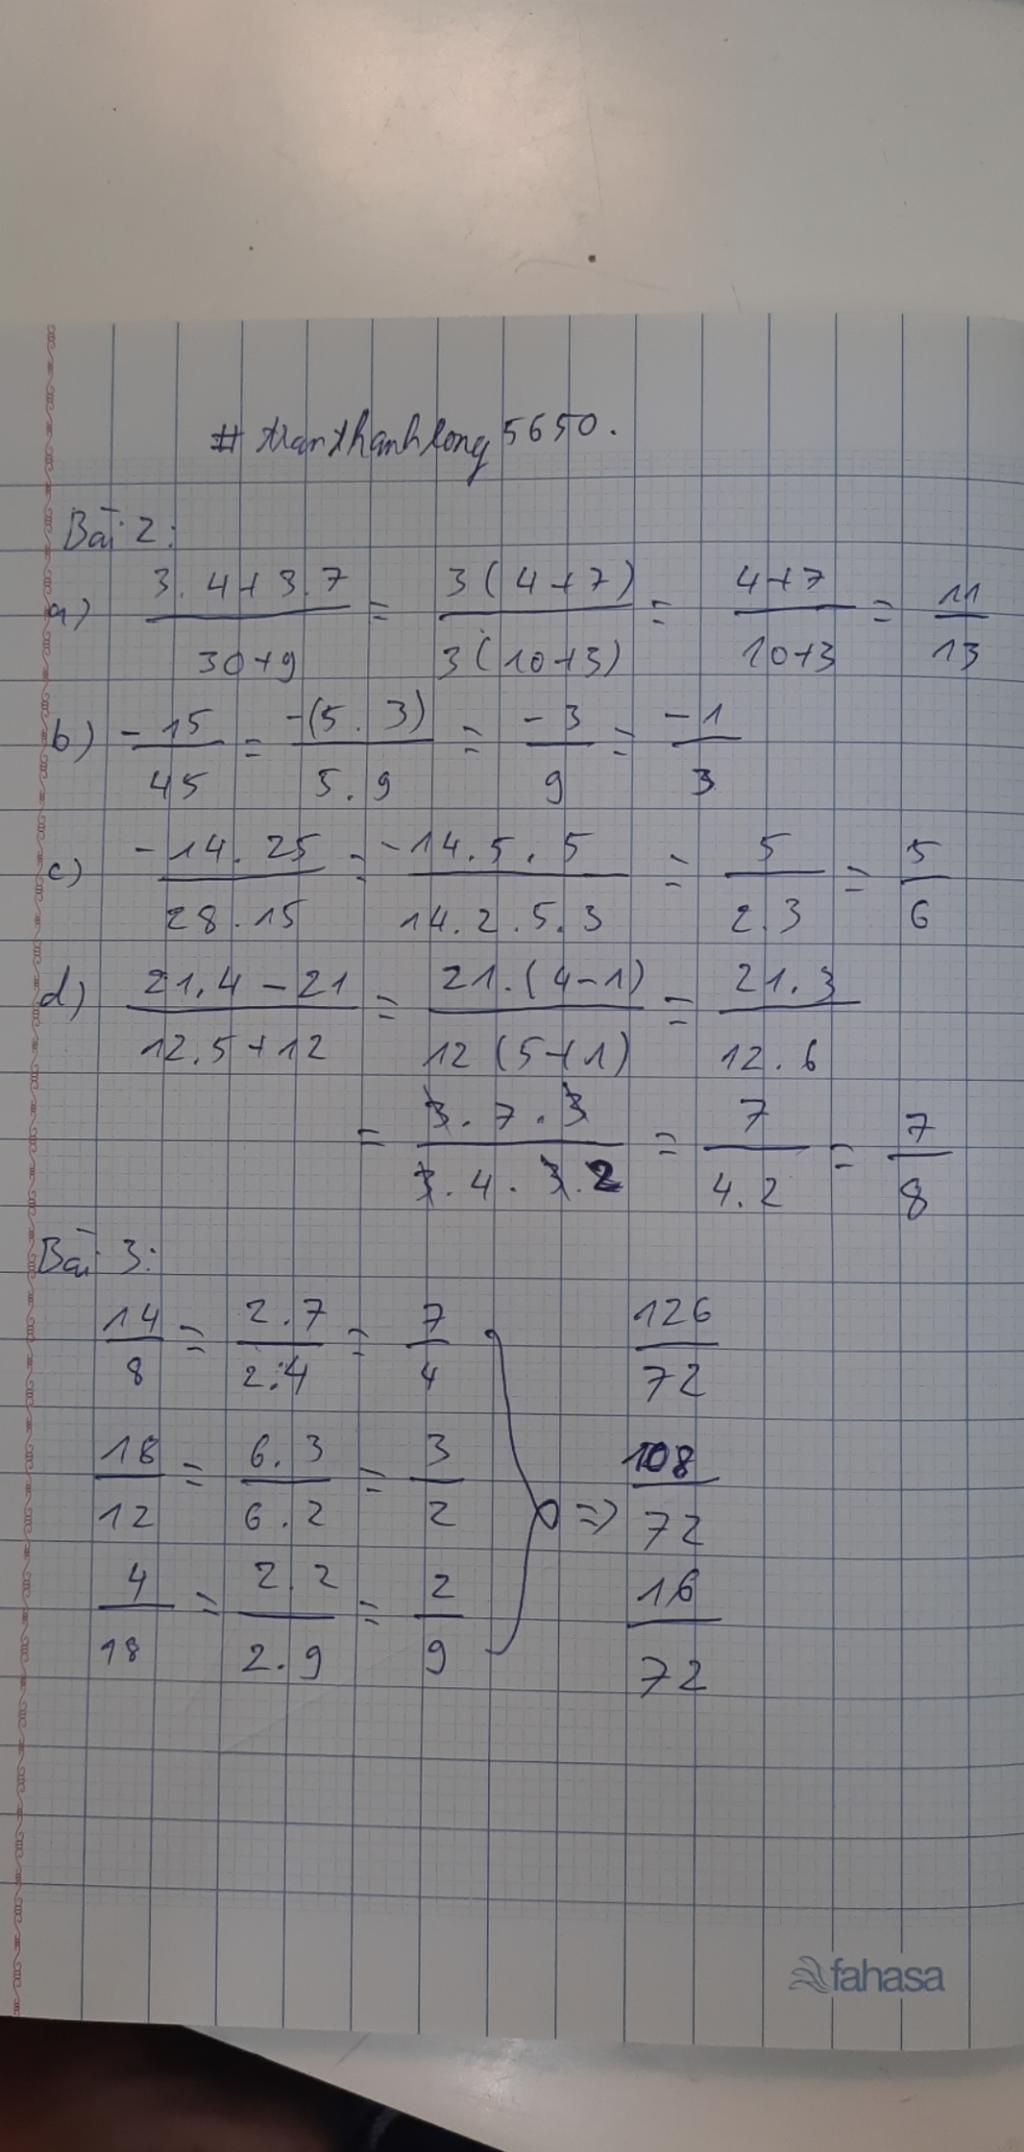 # tranthanhlong5650.
Bài 2:
a) \frac{3.4+3.7}{30+9} = \frac{3(4+7)}{3(10+3)} = \frac{4+7}{10+3} = \frac{11}{13}
b) \frac{-15}{45} = \frac{-(5.3)}{5.9} = \frac{-3}{9} = \frac{-1}{3}
c) \frac{-14.25}{28.15} = \frac{-14.5.5}{14.2.5.3} = \frac{5}{2.3} = \frac{5}{6}
d) \frac{21.4-21}{12.5+12} = \frac{21.(4-1)}{12(5+1)} = \frac{21.3}{12.6}
= \frac{3.7.3}{3.4.3.2} = \frac{7}{4.2} = \frac{7}{8}
Bài 3:
\frac{14}{8} = \frac{2.7}{2.4} = \frac{7}{4} \frac{126}{72}
\frac{18}{12} = \frac{6.3}{6.2} = \frac{3}{2} => \frac{108}{72}
\frac{4}{18} = \frac{2.2}{2.9} = \frac{2}{9} \frac{16}{72}
fahasa